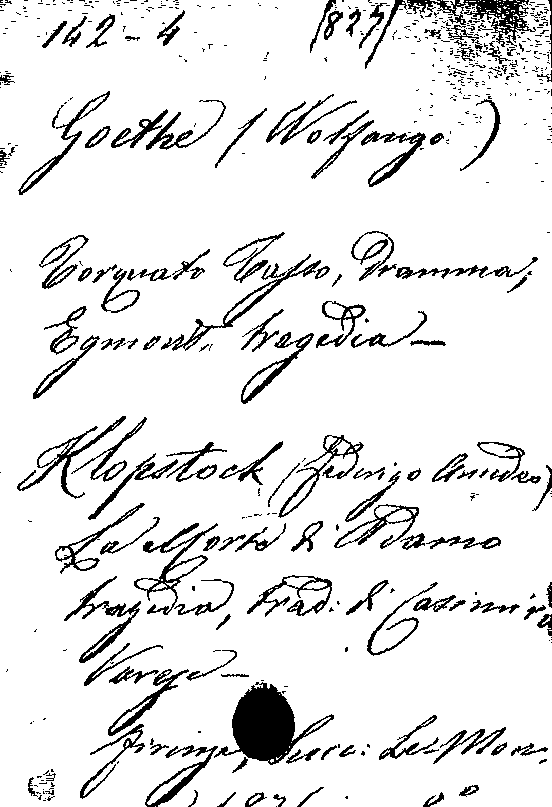 142-4 1827
Goethe (Wolfango)
Torquato Tasso, Dramma;
Egmont. tragedia —
Klopstock (Federigo Amedeo)
La Morte di Adamo
tragedia, trad: di Casimiro
Varese —
Firenze, Succ: Le Mon-